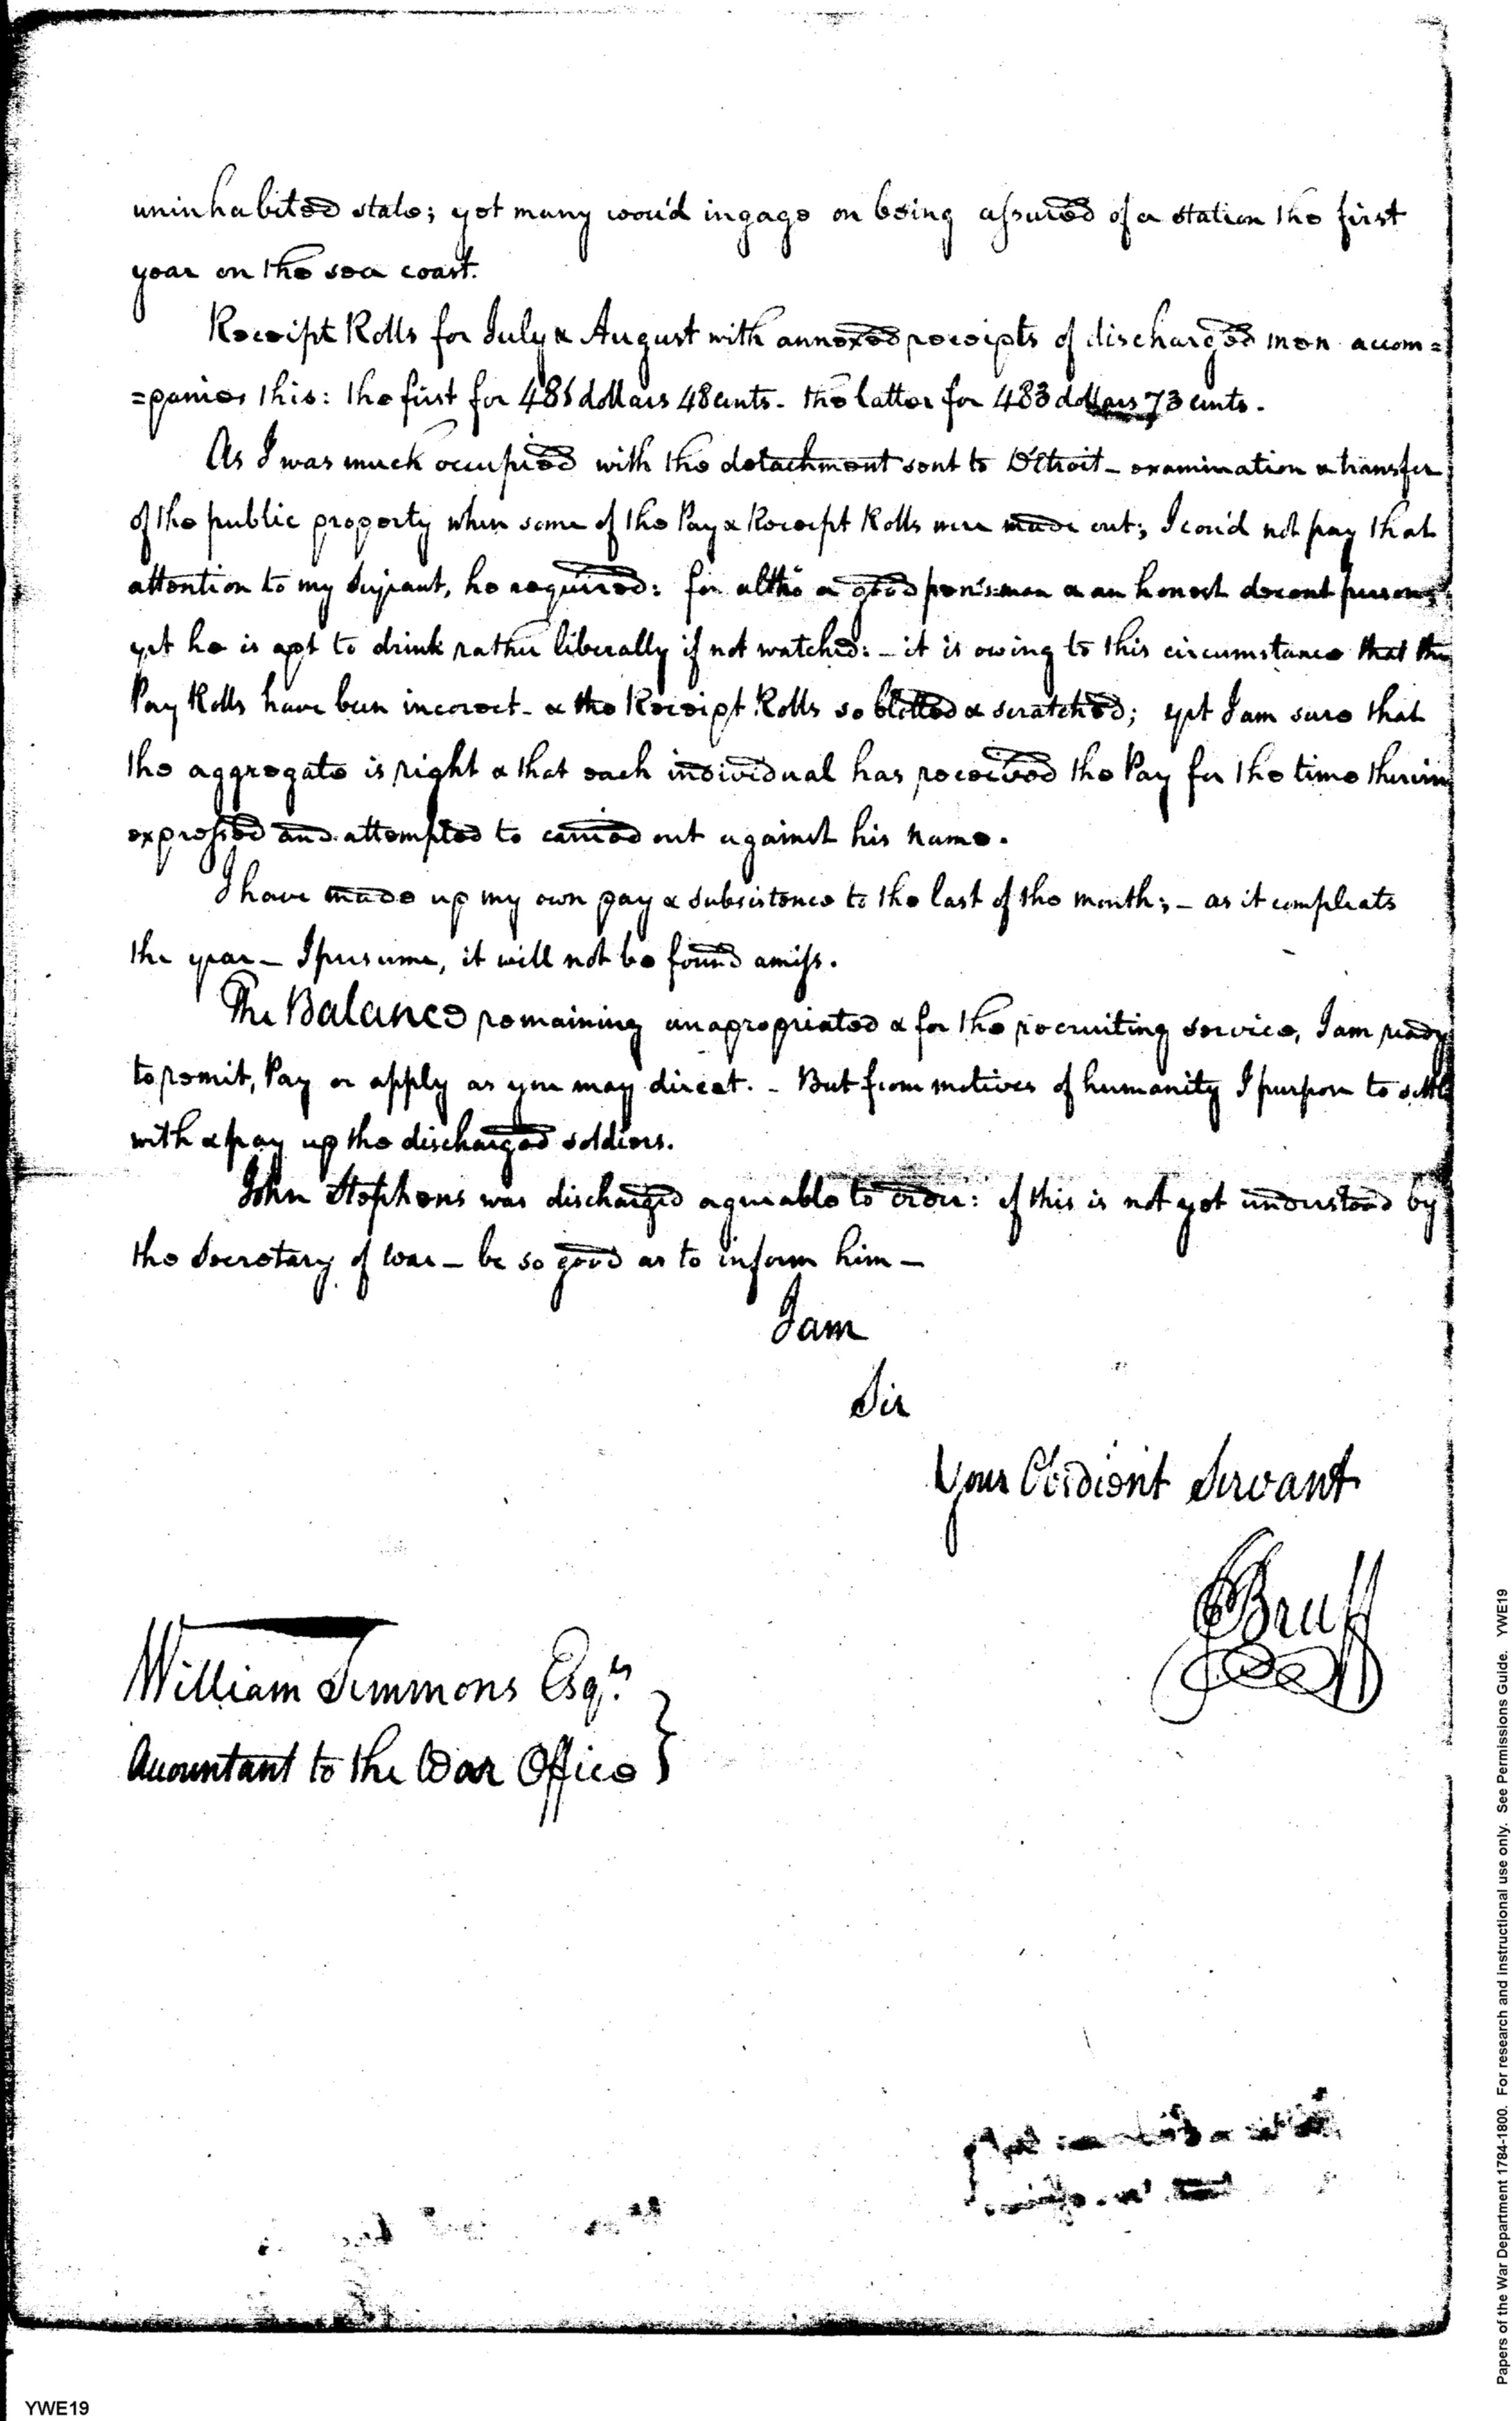 uninhabited state; yet many wou'd ingage on being assured of a station the first
year on the sea coast.
Receipt Rolls for July & August with annexed receipts of discharged men accom=
=panies this: the first for 486 dollars 48 cents. the latter for 483 dollars 73 cents.
As I was much occupied with the detachment sent to Detroit - examination & transfer
of the public property when some of the Pay & Receipt Rolls were made out; I cou'd not pay that
attention to my Serjeant, he required: for altho' a good pen's-man & an honest decent person;
yet he is apt to drink rather liberally if not watched: - it is owing to this circumstance that the
Pay Rolls have been incorect - & the Receipt Rolls so blotted & scratched; yet I am sure that
the aggregate is right & that each individual has received the Pay for the time therein
expressed and attempted to carried out against his name.
I have made up my own pay & subsistence to the last of the month; - as it compleats
the year - I presume, it will not be found amiss.
The Balance remaining unapropriated & for the recruiting service, I am ready
to remit, Pay or apply as you may direct. - But from motives of humanity I purpose to settle
with & pay up the discharged soldiers.
John Stephens was discharged agreeable to order: if this is not yet understood by
the Secretary of War - be so good as to inform him -
I am
Sir
Your Obedient Servant
Bruff
William Simmons Esqr.
Accountant to the War Office
Papers of the War Department 1784-1800. For research and instructional use only. See Permissions Guide. YWE19
YWE19